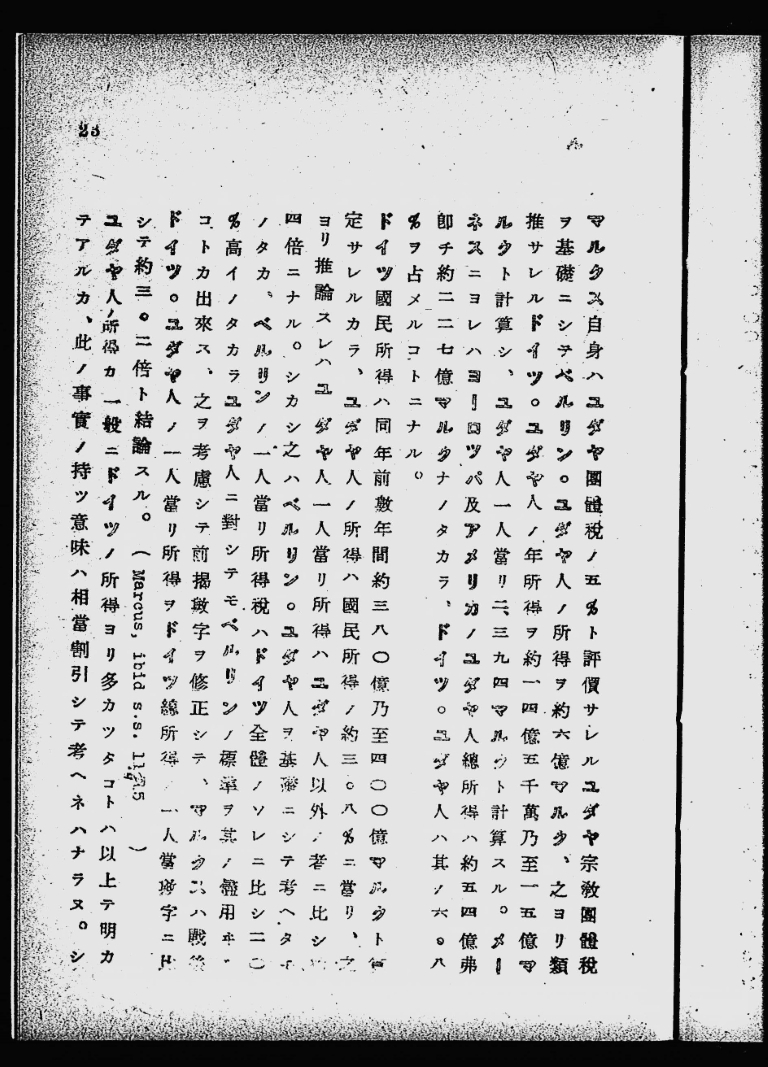 マルクス自身ハユダヤ團體稅ノ五%ト評價サレルユダヤ宗敎團體稅
ヲ基礎ニシテベルリン。ユダヤ人ノ所得ヲ約六億マルク、之ヨリ類
推サレルドイツ。ユダヤ人ノ年所得ヲ約一四億五千萬乃至一五億マ
ルクト計算シ、ユダヤ人一人當リ二、三九四マルクト計算スル。メー
ネスニヨレハヨーロツパ及アメリカノユダヤ人總所得ハ約五四億弗
卽チ約二二七億マルクナノタカラ、ドイツ。ユダヤ人ハ其ノ六。八
%ヲ占メルコトニナル。
ドイツ國民所得ハ同年前數年間約三八〇億乃至四〇〇億マルクト
定サレルカラ、ユダヤ人ノ所得ハ國民所得ノ約三。八%ニ當リ、之
ヨリ推論スレハユダヤ人一人當リ所得ハユダヤ人以外ノ者ニ比シ
四倍ニナル。シカシ之ハベルリン。ユダヤ人ヲ基礎ニシテ考ヘタ
ノタカ、ベルリンノ一人當リ所得稅ハドイツ全體ノソレニ比シ二〇
%高イノタカラユダヤ人ニ對シテモベルリンノ標準ヲ其ノ儘用ヰ
コトカ出來ス、之ヲ考慮シテ前揭數字ヲ修正シテ、マルクスハ戰後
ドイツ。ユダヤ人ノ一人當リ所得ヲドイツ線所得 一人當 字ニ比
シテ約三。二倍ト結論スル。（Marcus, ibid s.s. 115）
ユダヤ人ノ所得カ一般ニドイツノ所得ヨリ多カツタコトハ以上テ明カ
テアルカ、此ノ事實ノ持ツ意味ハ相當割引シテ考ヘネハナラヌ。シ